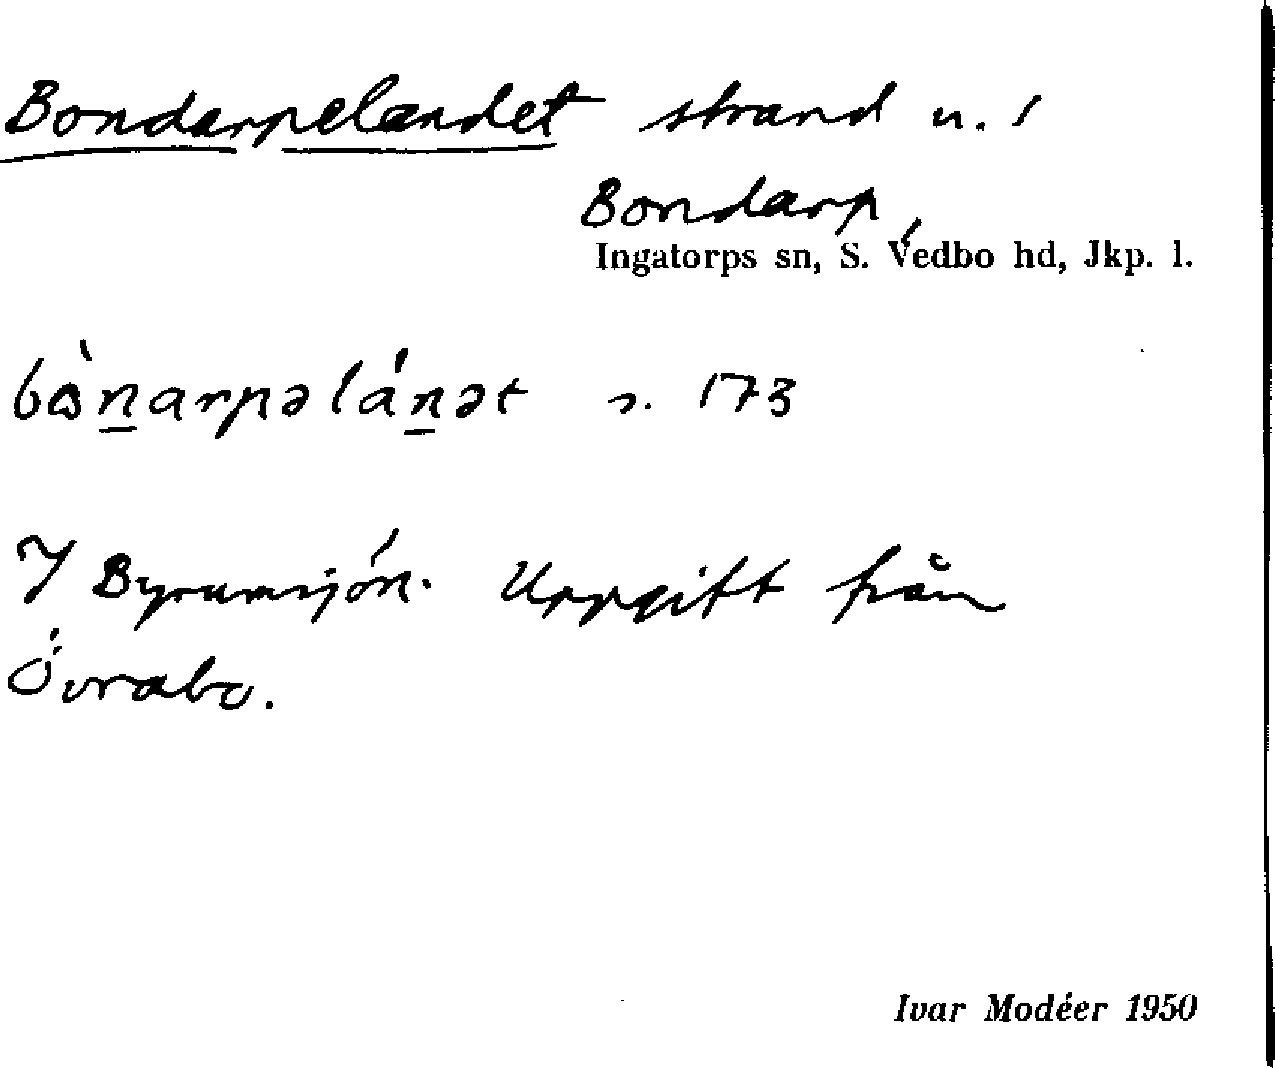 Bondarpelandet strand u. 1
Bondarp,
Ingatorps sn, S. Vedbo hd, Jkp. l.
bònarpəlánət s. 173
I Byrumsjön. Uppgift från
Övrabo.
Ivar Modéer 1950